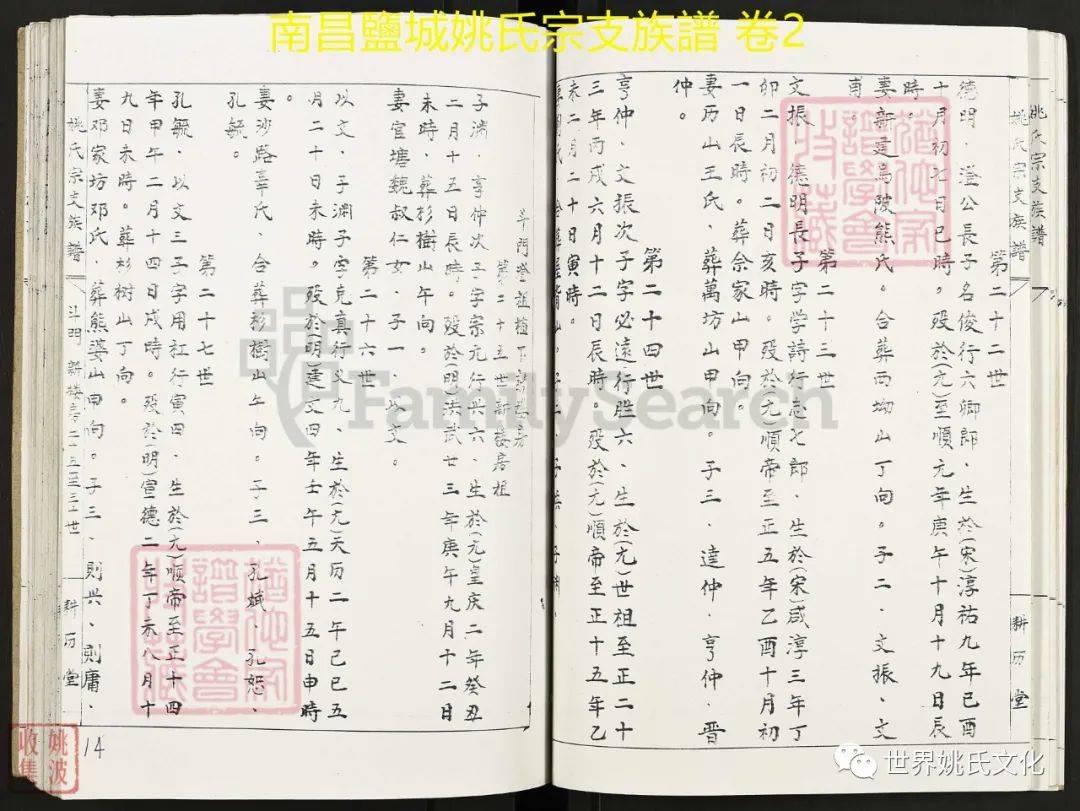 南昌鹽城姚氏宗支族譜 卷2
姚氏宗支族譜
耕历堂
第二十二世
德明．澄公長子名俊行六卿郎．生於(宋淳祐九年己酉
十月初七日巳時。殁於(元)至順元年庚午十月十九日辰
時。
妻新建烏陂熊氏。合葬西坳山丁向。子二．文振、文
甫。
第二十三世
文振．德明長子字学詩行志七郎．生於(宋)咸淳三年丁
卯二月初二日亥時。殁於元順帝至正五年乙酉十月初
一日辰時。葬佘家山甲向。
妻历山王氏、葬萬坊山甲向。子三．達仲．亨仲．晋
仲。
第二十四世
亨仲．文振次子字必遠行胜六、生於(元)世祖至正二十
三年丙戌六月十二日辰時．殁於(元)順帝至正十五年乙
未二月二十日寅時。
第二十五世新楼房祖
子渊．亨仲次子字宗元行兴六、生於(元)皇庆二年癸丑
二月十五日辰時。殁於(明)洪武廿三年庚午九月十二日
未時．葬杉樹山午向。
妻官塘魏叔仁女．子一．以文。
第二十六世
以文．子渊子字克真行义九、生於(元)天历二年己巳五
月二十日未時。殁於(明)建文四年壬午五月十五日申時
。
妻沙路辜氏、合葬杉樹山午向。子三、孔斌、孔恕、
孔毓。
第二十七世
孔毓．以文三子字用杠行寅四．生於(元)顺帝至正十四
年甲午二月十四日戌時。殁於(明)宣德二年丁未八月十
九日未時。葬杉树山丁向。
妻邓家坊邓氏．葬熊婆山由向。子三、則兴、則庸、
姚氏宗支族譜
斗門 新楼
世
耕历堂
14
姚波
收集
FamilySearch
世界姚氏文化